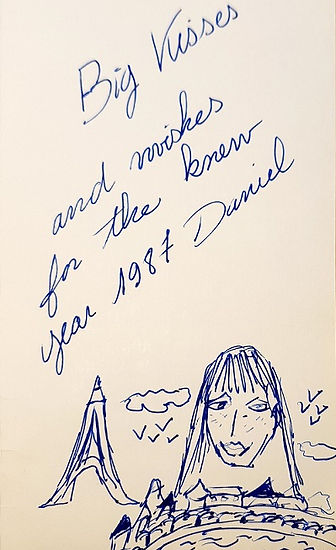 Big Kisses
and wishes
for the knew
year 1987 Daniel